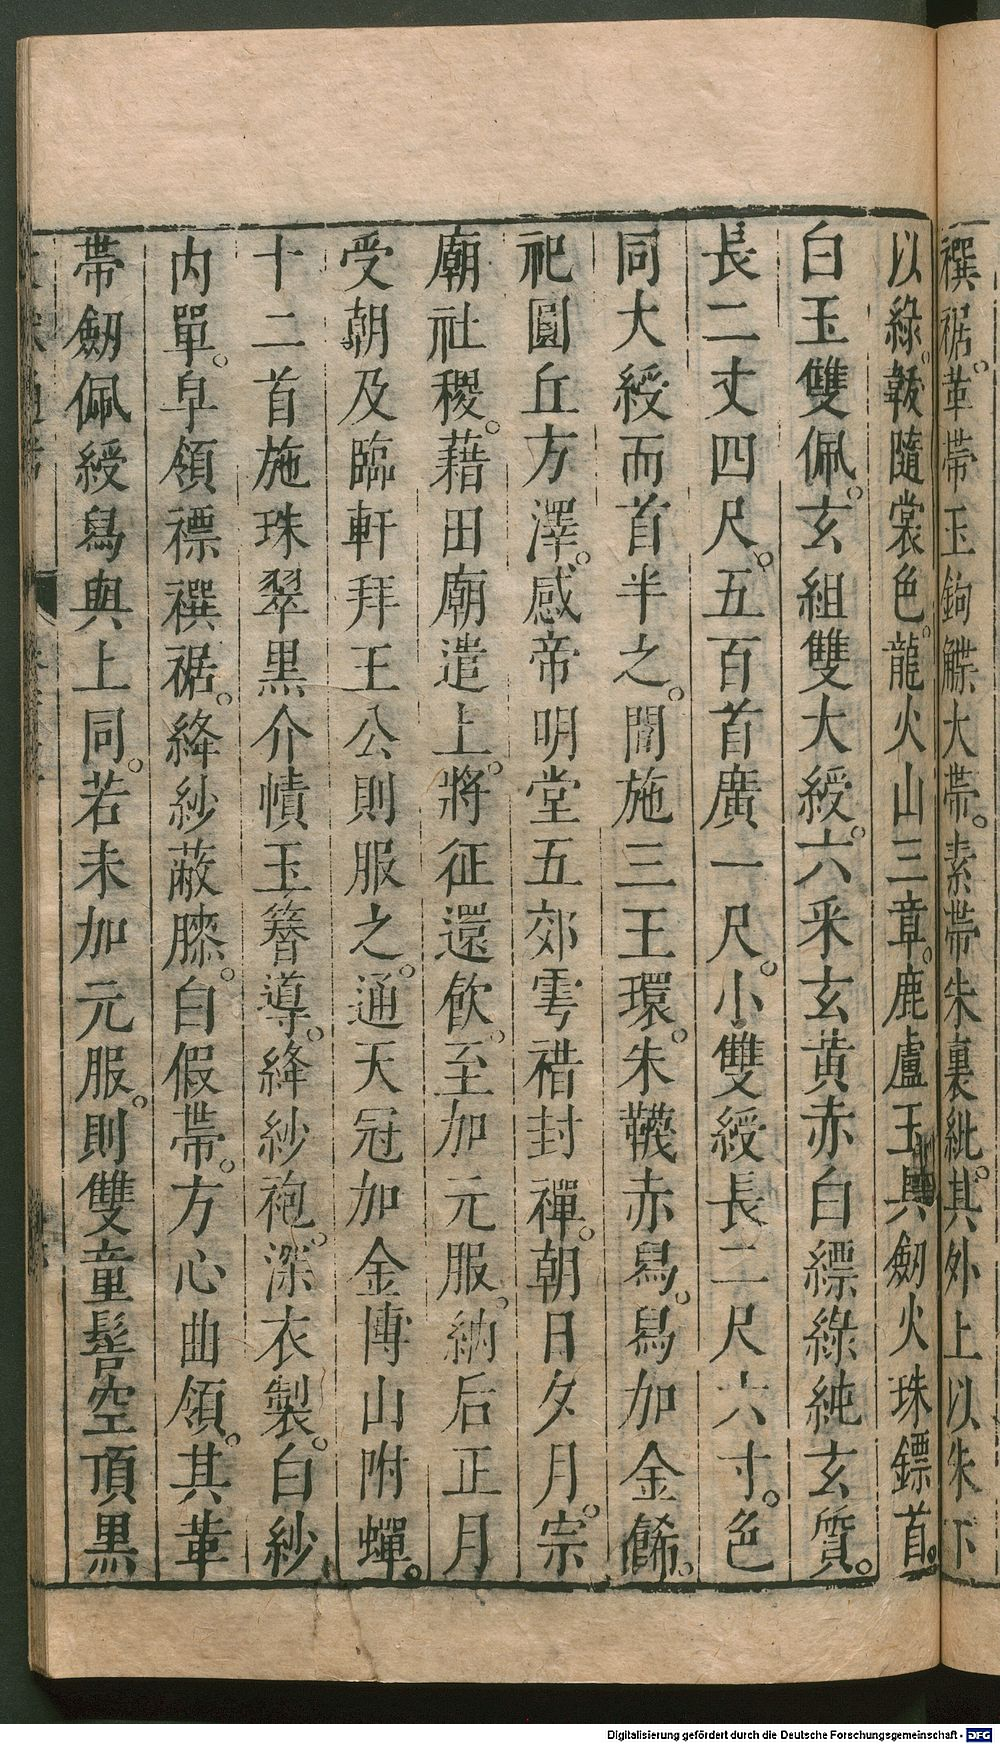 襈裾。革帶玉鉤䚢大帶。素帶朱裏紕。其外上以朱下
以綠。韍隨裳色。龍火山三章。鹿盧玉具劒火珠鏢首。
白玉雙佩。玄組雙大綬。六采玄黃赤白縹綠純玄質。
長二丈四尺。五百首廣一尺。小雙綬長二尺六寸。色
同大綬而首半之。閒施三王環。朱韈赤舄。舄加金餙。
祀圓丘方澤。感帝明堂五郊雩䄍封禪。朝日夕月。宗
廟社稷。藉田廟遣上。將征還飲。至加元服。納后正月
受朝及臨軒拜王公則服之。通天冠加金博山附蟬。
十二首施珠翠黑介幘玉簪導。絳紗袍。深衣製。白紗
内單。皁領褾襈裾。絳紗蔽膝。白假帶。方心曲領。其革
帶劒佩綬舄與上同。若未加元服。則雙童髻空頂黑
Digitalisierung gefördert durch die Deutsche Forschungsgemeinschaft - DFG